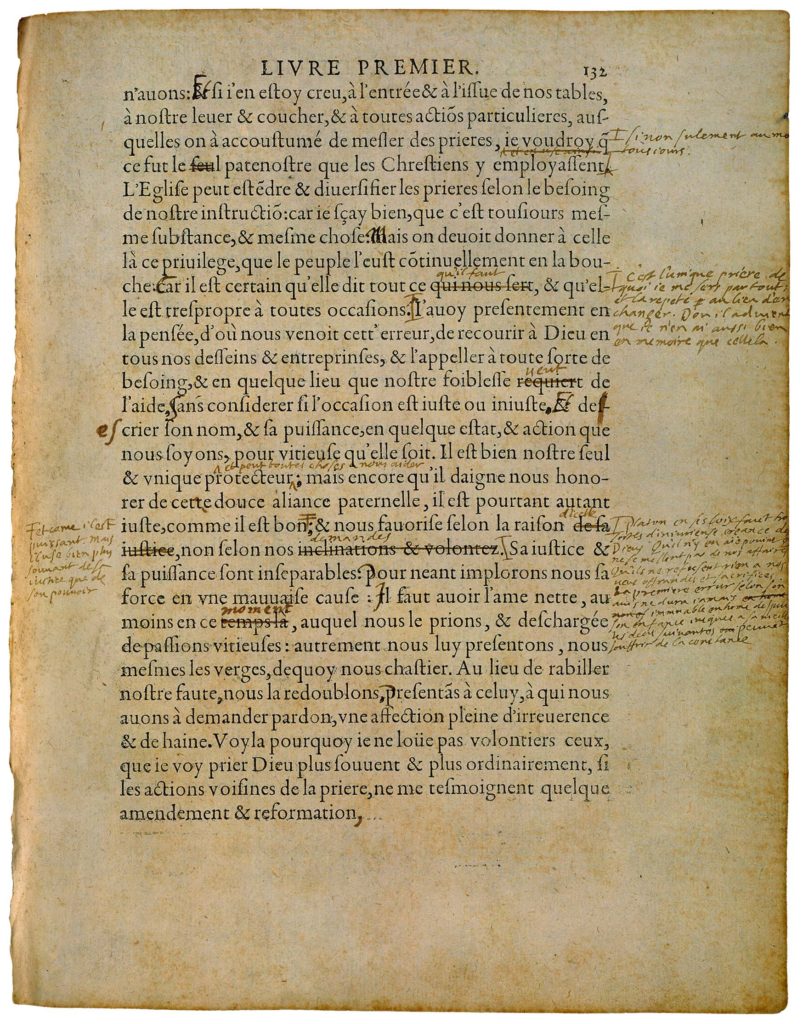 LIVRE PREMIER. 132
n'auons: Et si i'en estoy creu, à l'entrée & à l'issue de nos tables,
à nostre leuer & coucher, & à toutes actiōs particulieres, aus-
quelles on à accoustumé de mesler des prieres, ie voudroy q̃
ce fut le seul patenostre que les Chrestiens y employassent
si non sulement au mo
tousiours.
L'Eglise peut estēdre & diuersifier les prieres selon le besoing
de nostre instructiō: car ie sçay bien, que c'est tousiours mes-
me substance, & mesme chose. Mais on deuoit donner à celle
là ce priuilege, que le peuple l'eust cōtinuellement en la bou-
qu'il faut
che: Car il est certain qu'elle dit tout ce qui nous sert, & qu'el-
le est trespropre à toutes occasions. I'auoy presentement en
c'est l'unique prière de
quoi ie me sers par tout
et la repete au lieu d'en
changer. D'ou il aduient
que ie n'en ai aussi bien
en memoire que cellela
la pensée, d'où nous venoit cett'erreur, de recourir à Dieu en
tous nos desseins & entreprinses, & l'appeller à toute sorte de
veut
besoing, & en quelque lieu que nostre foiblesse requiert de
l'aide, sans considerer si l'occasion est iuste ou iniuste, Et des
es crier son nom, & sa puissance, en quelque estat, & action que
nous soyons, pour vitieuse qu'elle soit. Il est bien nostre seul
et peut toutes choses a nous aider
& vnique protecteur; mais encore qu'il daigne nous hono-
rer de cette douce aliance paternelle, il est pourtant autant
dicelle
iuste, comme il est bon, & nous fauorise selon la raison de sa
demandes
iustice, non selon nos inclinations & volontez. Sa iustice &
et come il est
puissant mais
il use bien plus
souuant de sa
iustice que de
son pouvoir
Platon en ses loix faict
sortes d'iniurieuse creance des
Dieus Qu'il n'y en aie point
ne se meslent pas de nos affaires
Qu'ils ne refusent rien a nos
offrandes et sacrifices
La premiere errur selon son
auis ne dura iamais
immuable en home despuis
son enfance iusques a sa vieillesse
les deus suiuantes peuuent
souffrir de la constance
sa puissance sont inseparables: Pour neant implorons nous sa
force en vne mauuaise cause: Il faut auoir l'ame nette, au
moment
moins en ce temps là, auquel nous le prions, & deschargée
de passions vitieuses: autrement nous luy presentons, nous
mesmes les verges, dequoy nous chastier. Au lieu de rabiller
nostre faute, nous la redoublons, presentās à celuy, à qui nous
auons à demander pardon, vne affection pleine d'irreuerence
& de haine. Voyla pourquoy ie ne loüe pas volontiers ceux,
que ie voy prier Dieu plus souuent & plus ordinairement, si
les actions voisines de la priere, ne me tesmoignent quelque
amendement & reformation,